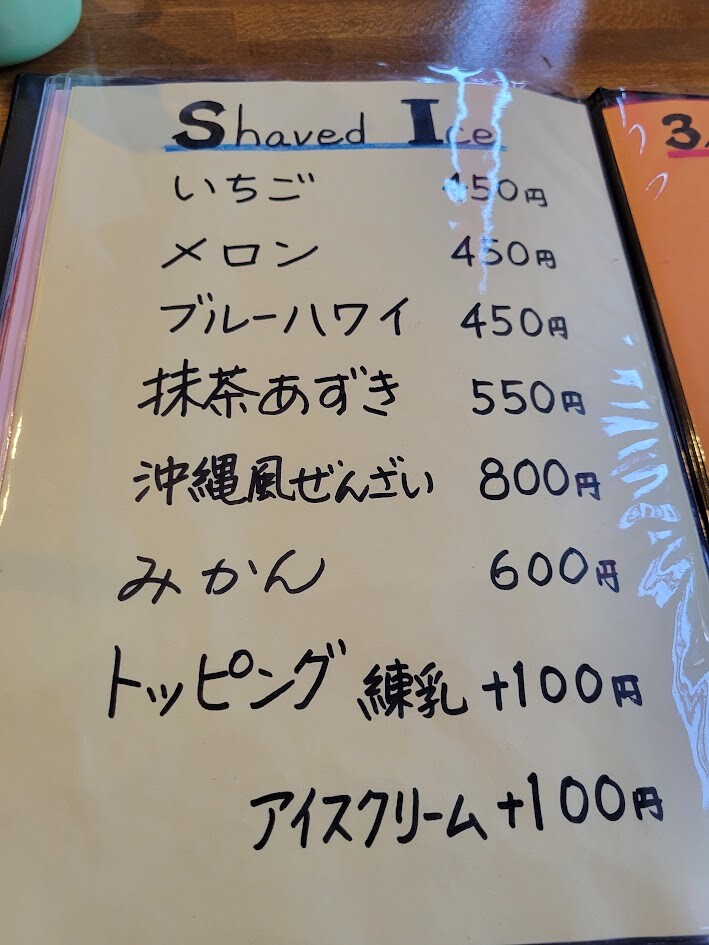 Shaved Ice
いちご 450円
メロン 450円
ブルーハワイ 450円
抹茶あずき 550円
沖縄風ぜんざい 800円
みかん 600円
トッピング 練乳 +100円
アイスクリーム +100円
3